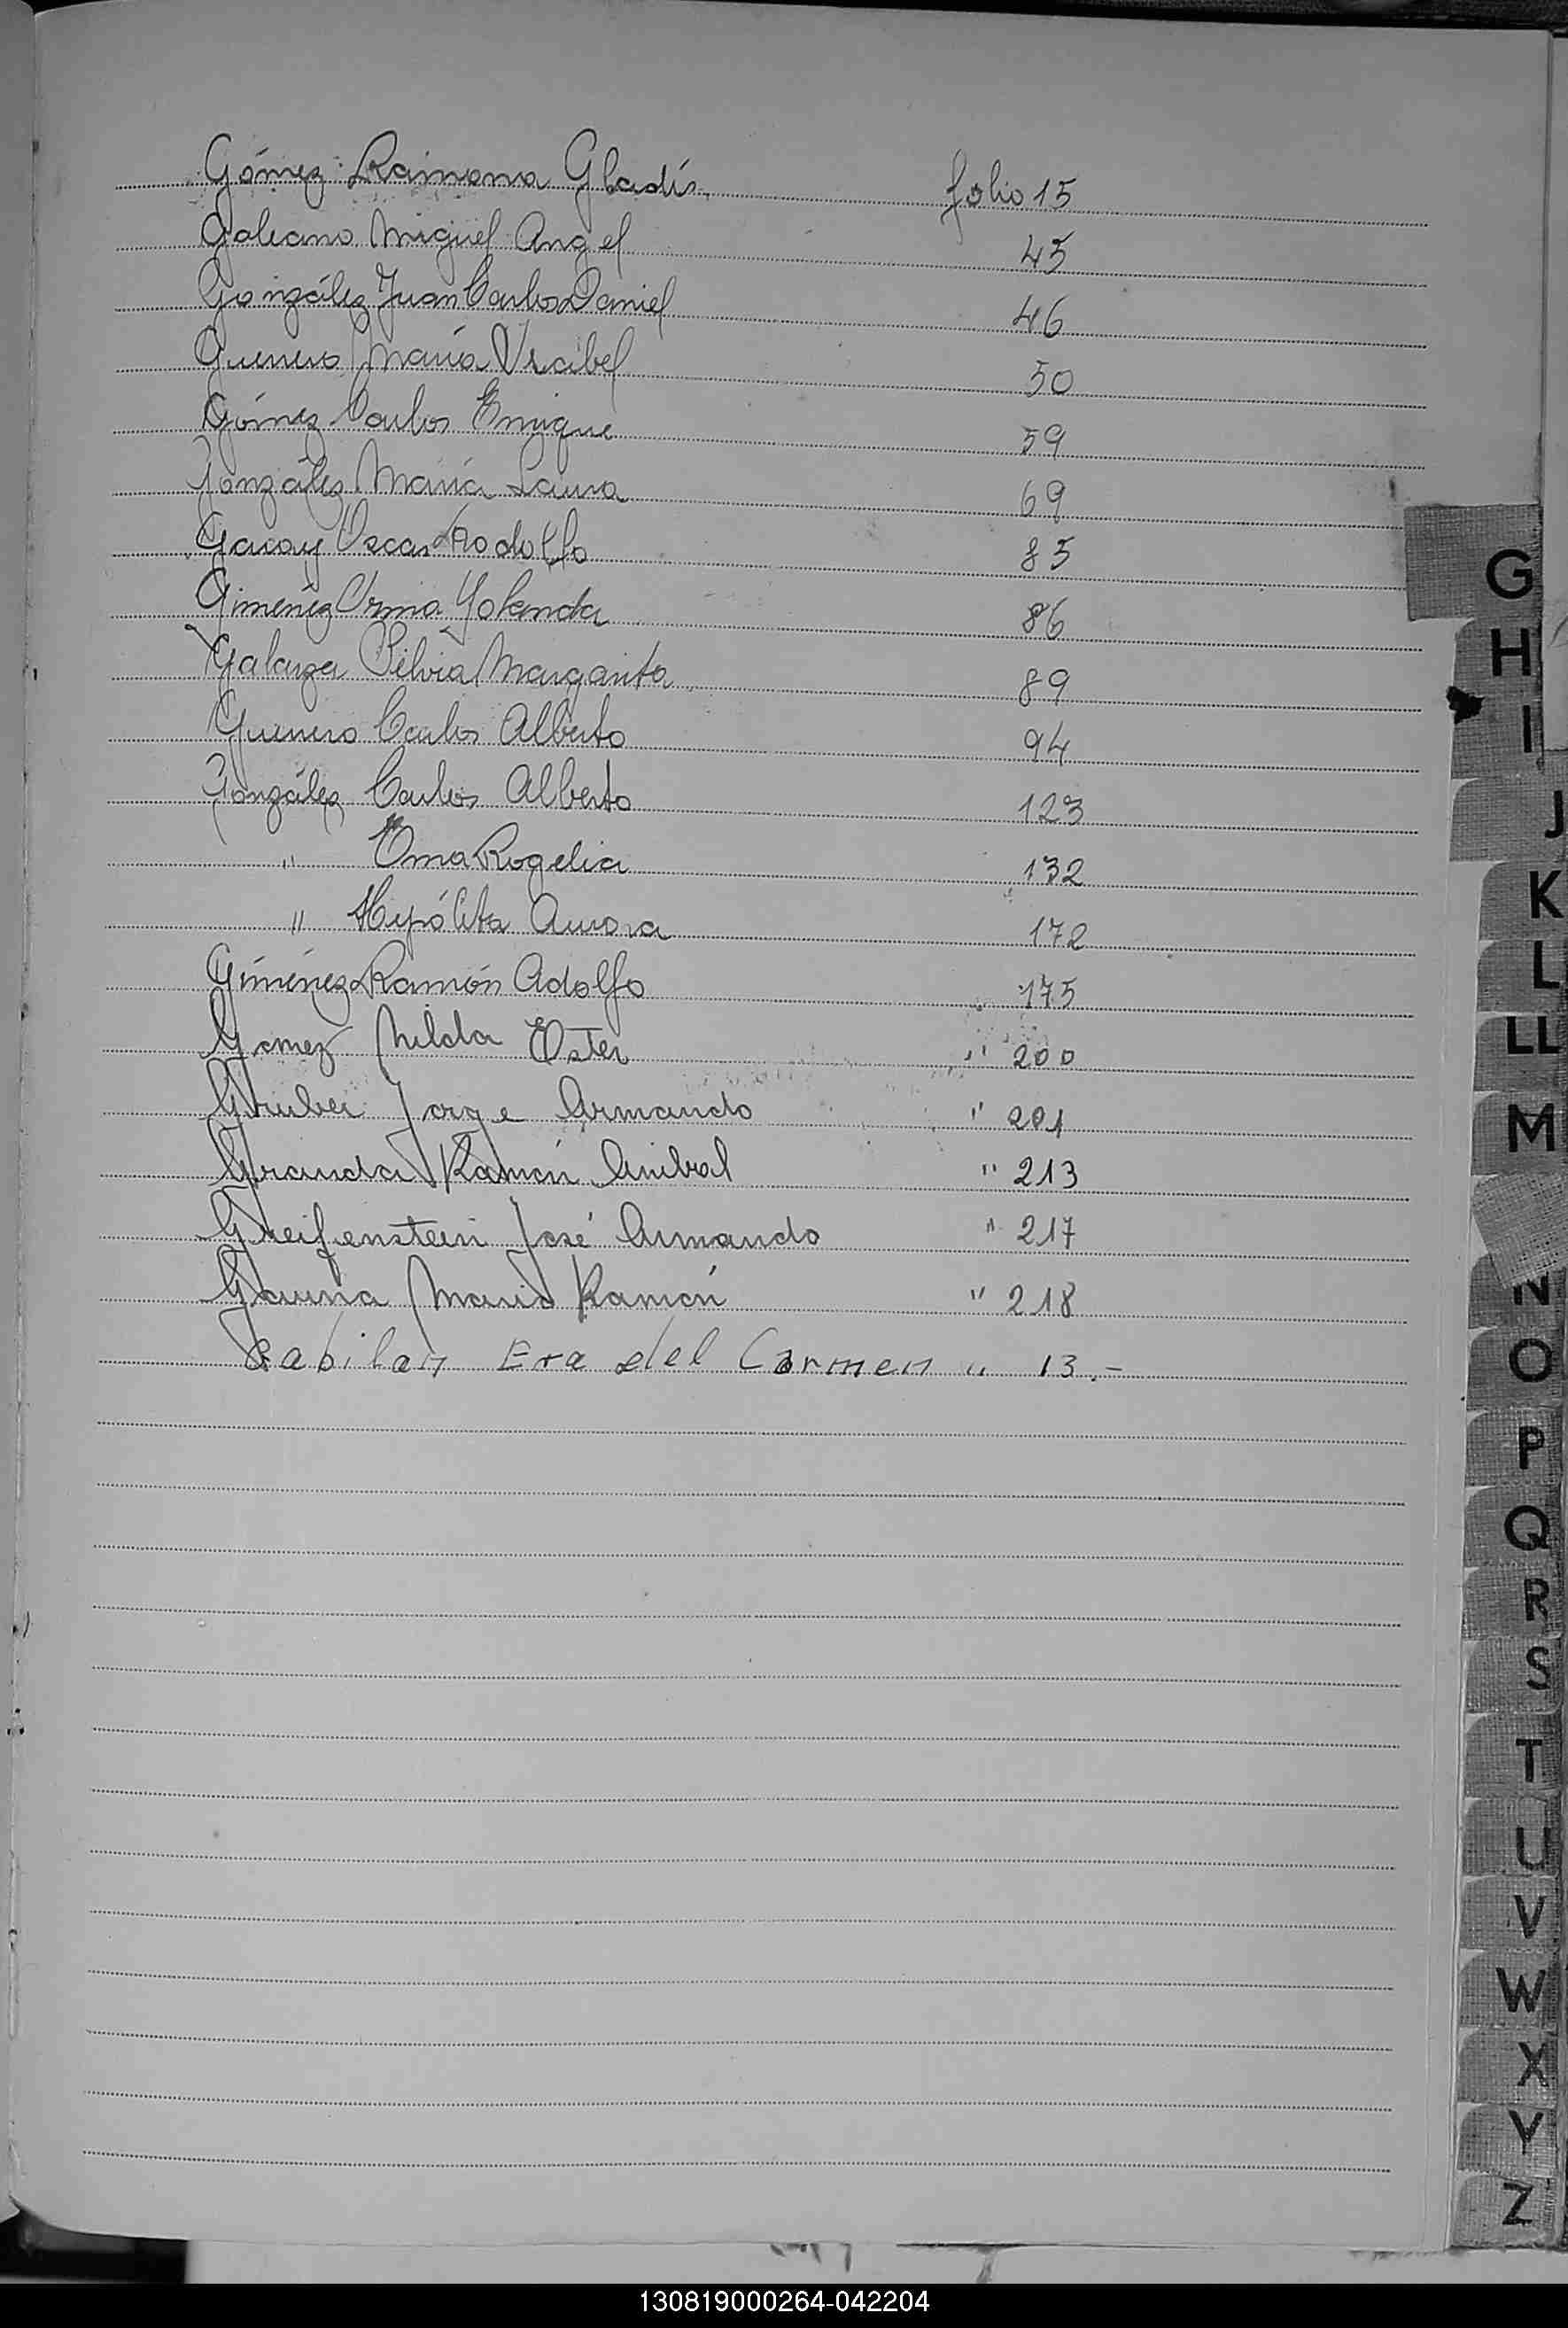 Gómez Ramona Gladis folio 15
Galeano Miguel Angel 45
González Juan Carlos Daniel 46
Guerrero María Ysabel 50
Gómez Carlos Enrique 59
González María Laura 69
Garay Oscar Rodolfo 85
Gimenez Irma Yolanda 86
Galarza Silvia Margarita 89
Guerrero Carlos Alberto 94
González Carlos Alberto 123
" Ema Rogelia 132
" Hipólita Aurora 172
Giménez Ramón Adolfo 175
Gomez Nilda Ester " 200
Gruber Jorge Armando " 201
Granda Ramón Anibal " 213
Greifenstein José Armando " 217
Gauna Mario Ramón " 218
Gabilan Eva del Carmen " 13.-
G
H
I
J
K
L
LL
M
N
O
P
Q
R
S
T
U
V
W
X
Y
Z
130819000264-042204